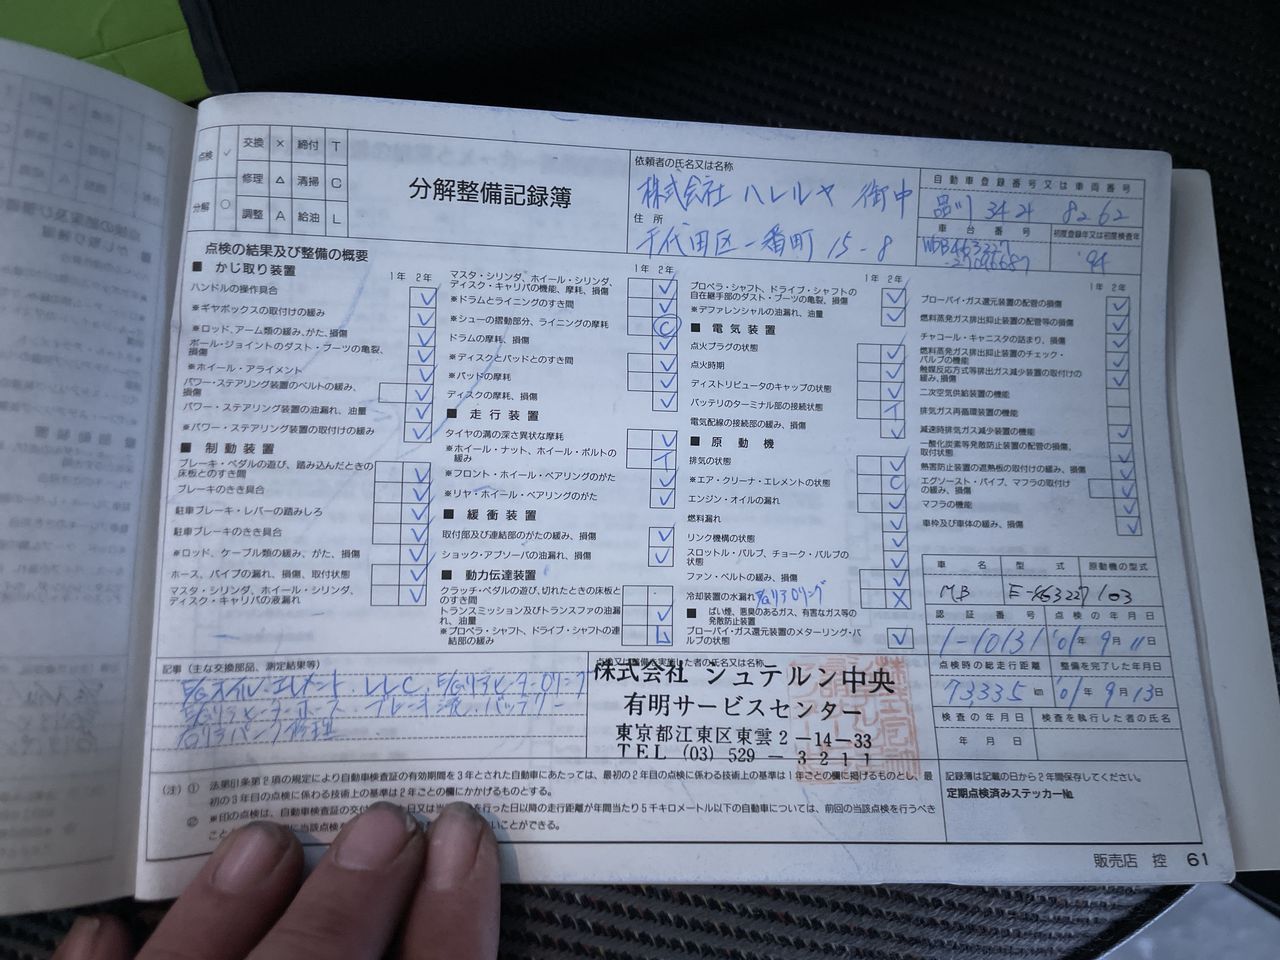 点検 ✓ 交換 × 締付 T
修理 △ 清掃 C
分解 ○ 調整 A 給油 L
分解整備記録簿
依頼者の氏名又は名称
株式会社 ハレルヤ
住所
千代田区一番町 15-8
自動車登録番号又は車両番号
品川 34 8262
車台番号
初度登録年又は初度検査年
'94
点検の結果及び整備の概要
■ かじ取り装置
1年 2年
ハンドルの操作具合
※ギヤボックスの取付けの緩み
※ロッド、アーム類の緩み、がた、損傷
ボール・ジョイントのダスト・ブーツの亀裂、
損傷
※ホイール・アライメント
パワー・ステアリング装置のベルトの緩み、
損傷
パワー・ステアリング装置の油漏れ、油量
※パワー・ステアリング装置の取付けの緩み
■ 制動装置
ブレーキ・ペダルの遊び、踏み込んだときの
床板とのすき間
ブレーキのきき具合
駐車ブレーキ・レバーの踏みしろ
駐車ブレーキのきき具合
※ロッド、ケーブル類の緩み、がた、損傷
ホース、パイプの漏れ、損傷、取付状態
マスタ・シリンダ、ホイール・シリンダ、
ディスク・キャリパの液漏れ
1年 2年
マスタ・シリンダ、ホイール・シリンダ、
ディスク・キャリパの機能、摩耗、損傷
※ドラムとライニングのすき間
※シューの摺動部分、ライニングの摩耗
ドラムの摩耗、損傷
※ディスクとパッドとのすき間
※パッドの摩耗
ディスクの摩耗、損傷
■ 走行装置
タイヤの溝の深さ異状な摩耗
※ホイール・ナット、ホイール・ボルトの
緩み
※フロント・ホイール・ベアリングのがた
※リヤ・ホイール・ベアリングのがた
■ 緩衝装置
取付部及び連結部のがたの緩み、損傷
ショック・アブソーバの油漏れ、損傷
■ 動力伝達装置
クラッチ・ペダルの遊び、切れたときの床板と
のすき間
トランスミッション及びトランスファの油漏
れ、油量
※プロペラ・シャフト、ドライブ・シャフトの連
結部の緩み
1年 2年
プロペラ・シャフト、ドライブ・シャフトの
自在継手部のダスト・ブーツの亀裂、損傷
※デファレンシャルの油漏れ、油量
■ 電気装置
点火プラグの状態
点火時期
ディストリビュータのキャップの状態
バッテリのターミナル部の接続状態
電気配線の接続部の緩み、損傷
■ 原動機
排気の状態
※エア・クリーナ・エレメントの状態
エンジン・オイルの漏れ
燃料漏れ
リンク機構の状態
スロットル・バルブ、チョーク・バルブの
状態
ファン・ベルトの緩み、損傷
冷却装置の水漏れ
■ ばい煙、悪臭のあるガス、有害なガス等の
発散防止装置
ブローバイ・ガス還元装置のメターリング・バ
ルブの状態
1年 2年
ブローバイ・ガス還元装置の配管の損傷
燃料蒸発ガス排出抑止装置の配管等の損傷
チャコール・キャニスタの詰まり、損傷
燃料蒸発ガス排出抑止装置のチェック・
バルブの機能
触媒反応方式等排出ガス減少装置の取付けの
緩み、損傷
二次空気供給装置の機能
排気ガス再循環装置の機能
減速時排気ガス減少装置の機能
一酸化炭素等発散防止装置の配管の損傷、
取付状態
熱害防止装置の遮熱板の取付けの緩み、損傷
エグゾースト・パイプ、マフラの取付け
の緩み、損傷
マフラの機能
車枠及び車体の緩み、損傷
車名 型式 原動機の型式
MB E-463227 103
認証番号 点検の年月日
1-10131 '01年 9月 11日
点検時の総走行距離 整備を完了した年月日
73,335 km '01年 9月 13日
検査の年月日 検査を執行した者の氏名
年 月 日
記事 (主な交換部品、測定結果等)
E/Gオイル・エレメント、LLC
ブレーキ液、バッテリー
パンク修理
点検又は整備を実施した者の氏名又は名称
株式会社 シュテルン中央
有明サービスセンター
東京都江東区東雲2-14-33
TEL (03) 529-3211
(注) ① 法第81条第2項の規定により自動車検査証の有効期間を3年とされた自動車にあたっては、最初の2年目の点検に係わる技術上の基準は1年ごとの欄に掲げるものとし、最
初の3年目の点検に係わる技術上の基準は2年ごとの欄にかかげるものとする。
② ※印の点検は、自動車検査証の交付 た日又は当 を行った日以降の走行距離が年間当たり5千キロメートル以下の自動車については、前回の当該点検を行うべき
こと に当該点検を いことができる。
記録簿は記載の日から2年間保存してください。
定期点検済みステッカー№
販売店 控 61